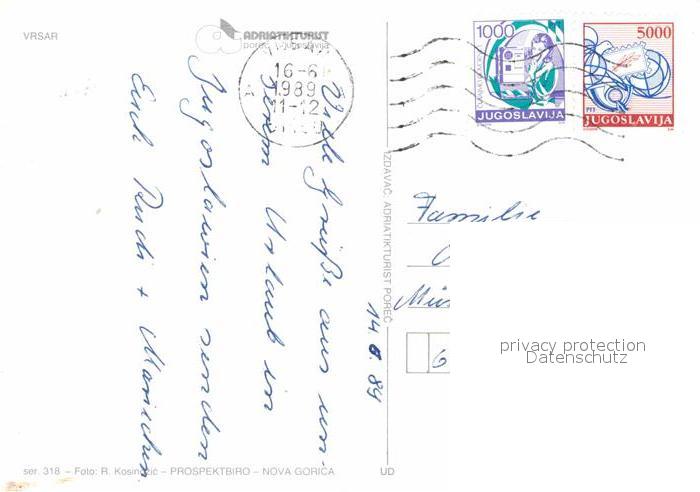 VRSAR
ADRIATIKTURIST
poreč - jugoslavija
16-6
1989
11-12
1000
JUGOSLAVIJA
5000
PTT
JUGOSLAVIJA
Viele Grüße aus un-
serem Urlaub in
Jugoslawien senden
Euch Rudi + Mariechen
14.6.89
IZDAVAČ: ADRIATIKTURIST POREČ
Familie
6
privacy protection
Datenschutz
ser. 318 – Foto: R. Kosinožić – PROSPEKTBIRO – NOVA GORICA
UD